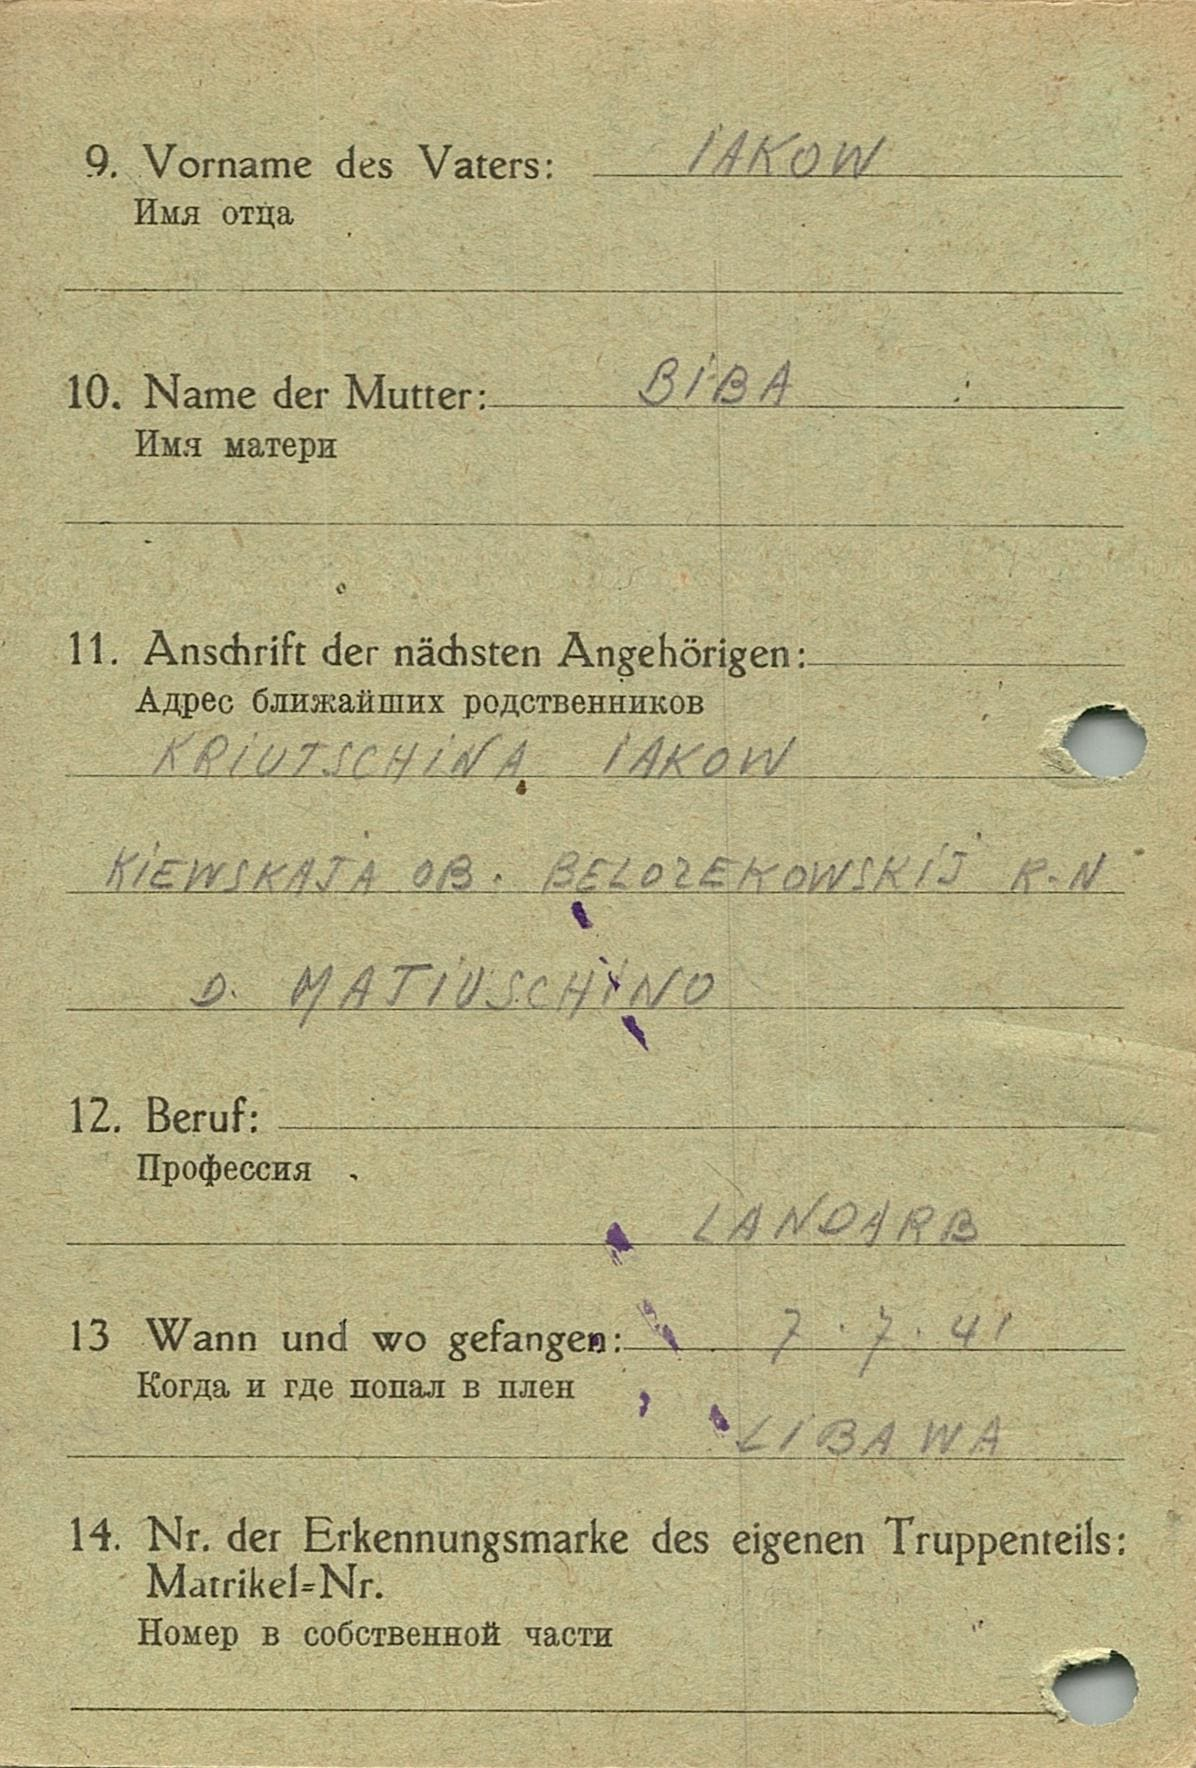 9. Vorname des Vaters: IAKOW
Имя отца
10. Name der Mutter: BIBA
Имя матери
11. Anschrift der nächsten Angehörigen:
Адрес ближайших родственников
KRIUTSCHINA IAKOW
KIEWSKAJA OB. BELOZEKOWSKIJ R-N
D. MATIUSCHINO
12. Beruf:
Профессия
LANDARB
13 Wann und wo gefangen: 7.7.41
Когда и где попал в плен
LIBAWA
14. Nr. der Erkennungsmarke des eigenen Truppenteils:
Matrikel=Nr.
Номер в собственной части